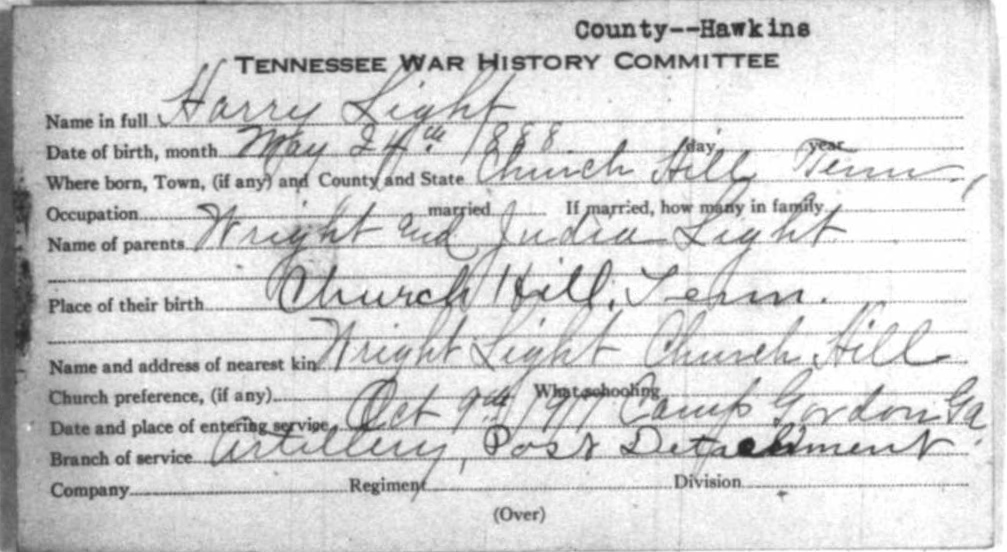 County--Hawkins
TENNESSEE WAR HISTORY COMMITTEE
Name in full Harry Light
Date of birth, month May 24th 1888 day year
Where born, Town, (if any) and County and State Church Hill, Tenn.,
Occupation married If married, how many in family
Name of parents Wright and Judea Light
Place of their birth Church Hill, Tenn.
Name and address of nearest kin Wright Light Church Hill
Church preference, (if any) What schooling
Date and place of entering service Oct 9th 1917 Camp Gordon Ga.
Branch of service Artillery, Post Detachment
Company Regiment Division
(Over)